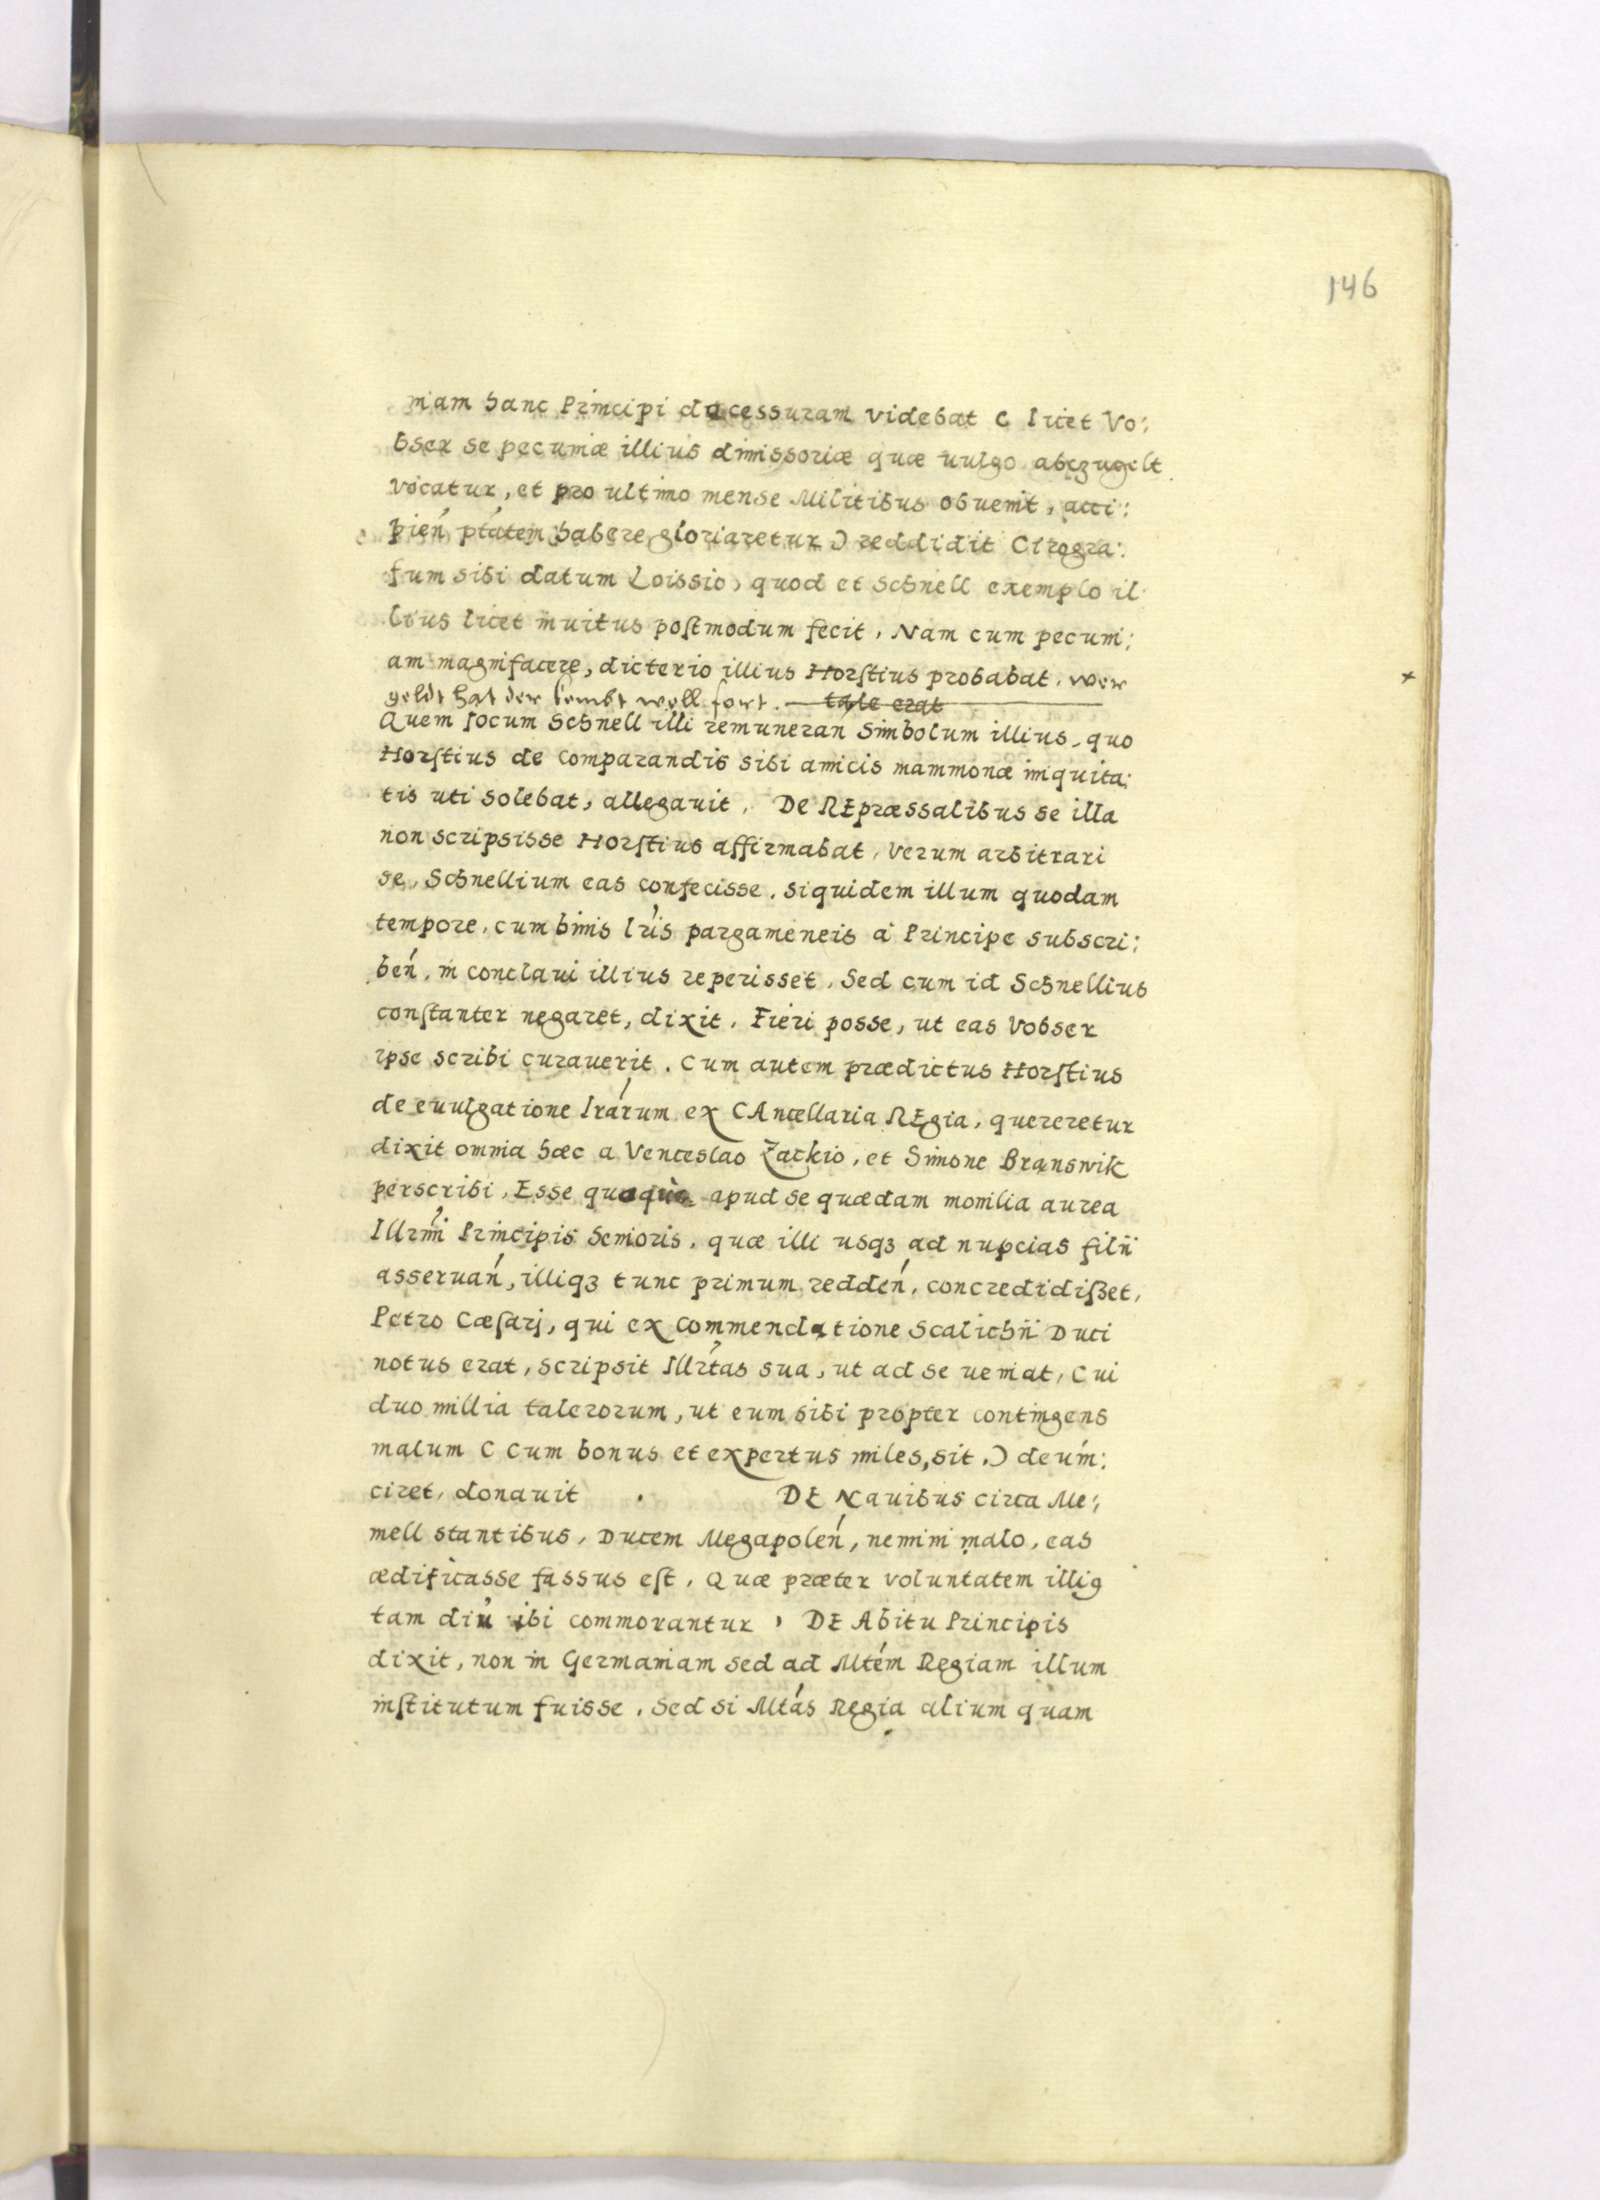 146
niam hanc Principi decessuram videbat ( licet Vo:
bser se pecuniæ illius dimissoriæ quæ uulgo abczugelt
vocatur, et pro ultimo mense Militibus obuenit, acci:
pień ptátem habere gloriaretur ) reddidit Cirogra:
fum sibi datum Loissio, quod et Schnell exemplo il
lius licet inuitus postmodum fecit, Nam cum pecuni:
am magnifacere, dicterio illius Horstius probabat, wer
geldt hat der kombt woll fort. tale erat
Quem locum Schnell illi remuneran Simbolum illius, quo
Horstius de comparandis sibi amicis mammonæ iniquita:
tis uti solebat, allegauit, De REpræssalibus se illa
non scripsisse Horstius affirmabat, verum arbitrari
se, Schnellium eas confecisse, siquidem illum quodam
tempore, cum binis lris pargameneis a Principe subscri:
beń, in conclaui illius reperisset, Sed cum id Schnellius
constanter negaret, dixit, Fieri posse, ut eas Vobser
ipse scribi curauerit. Cum autem prædictus Horstius
de euulgatione lrárum ex CAncellaria REgia, quereretur
dixit omnia hæc a Venceslao Zackio, et Simone Branswik
perscribi, Esse quoque apud se quædam monilia aurea
Illrmi Principis Senioris, quæ illi usqз ad nupcias filii
asseruań, illiqз tunc primum reddeń, concredidißet,
Petro Cæsarj, qui ex commendatione Scalichii Duci
notus erat, scripsit Illrtas sua, ut ad se ueniat, Cui
duo millia talerorum, ut eum sibi propter contingens
malum ( cum bonus et expertus miles, sit. ) deuin:
ciret, donauit . DE Nauibus circa Me:
mell stantibus, Ducem Megapoleń, nemini malo, eas
ædificasse fassus est, Quæ præter voluntatem illiꝯ
tam diu ibi commorantur, DE Abitu Principis
dixit, non in Germaniam sed ad Mtém Regiam illum
institutum fuisse, Sed si Mtás Regia alium quam